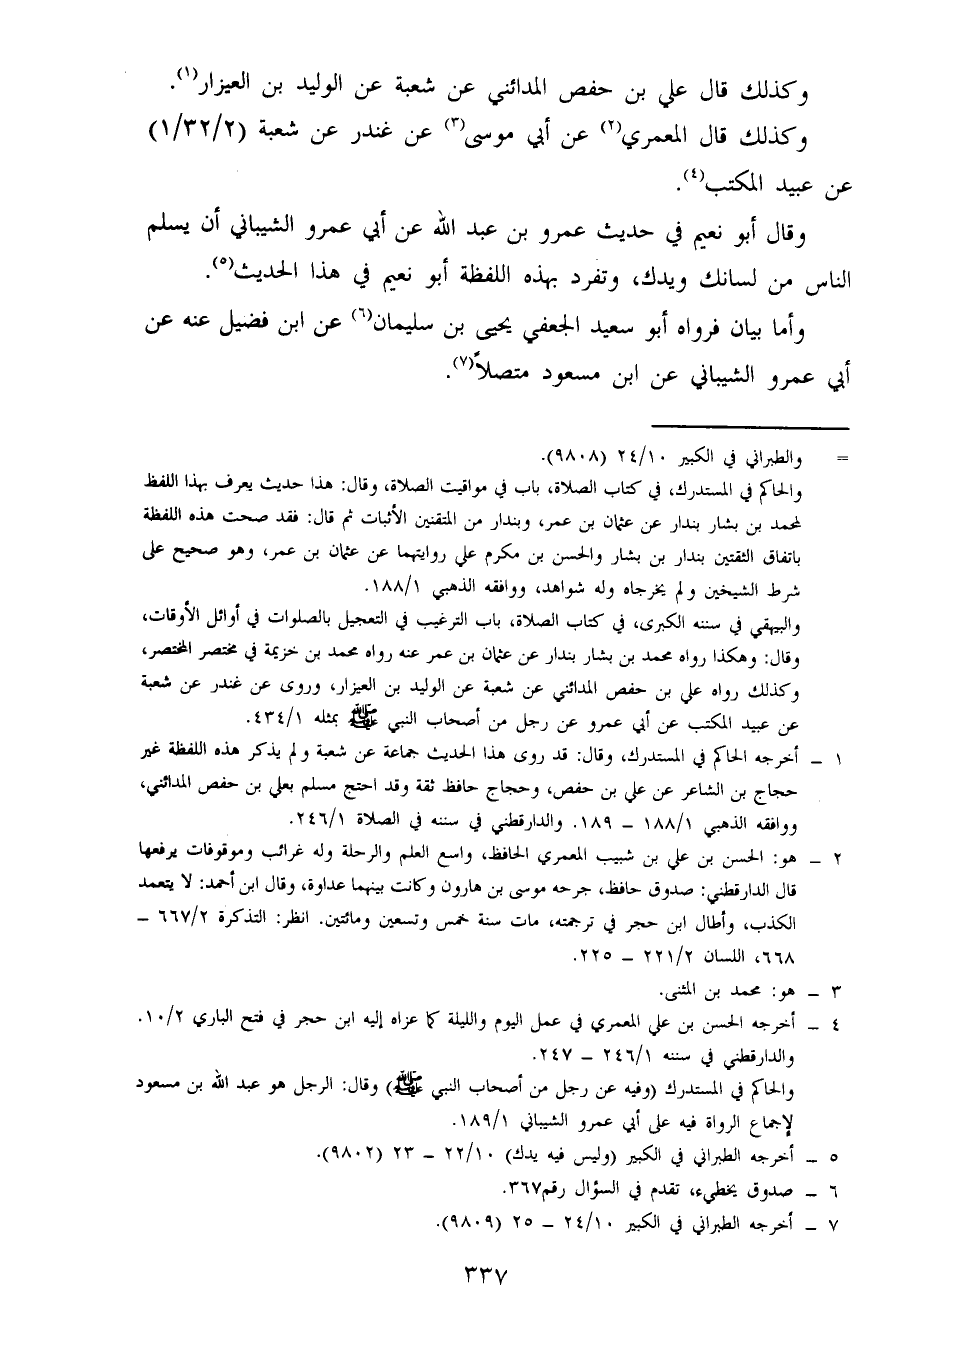 وكذلك قال علي بن حفص المدائني عن شعبة عن الوليد بن العيزار(١).
وكذلك قال المعمري(٢) عن أبي موسى(٣) عن غندر عن شعبة (١/٣٢/٢)
عن عبيد المكتب(٤).
وقال أبو نعيم في حديث عمرو بن عبد الله عن أبي عمرو الشيباني أن يسلم
الناس من لسانك ويدك، وتفرد بهذه اللفظة أبو نعيم في هذا الحديث(٥).
وأما بيان فرواه أبو سعيد الجعفي يحيى بن سليمان(٦) عن ابن فضيل عنه عن
أبي عمرو الشيباني عن ابن مسعود متصلاً(٧).
= والطبراني في الكبير ٢٤/١٠ (٩٨٠٨).
والحاكم في المستدرك، في كتاب الصلاة، باب في مواقيت الصلاة، وقال: هذا حديث يعرف بهذا اللفظ
لمحمد بن بشار بندار عن عثمان بن عمر، وبندار من المتقنين الأثبات ثم قال: فقد صحت هذه اللفظة
باتفاق الثقتين بندار بن بشار والحسن بن مكرم علي روايتهما عن عثمان بن عمر، وهو صحيح على
شرط الشيخين ولم يخرجاه وله شواهد، ووافقه الذهبي ١٨٨/١.
والبيهقي في سننه الكبرى، في كتاب الصلاة، باب الترغيب في التعجيل بالصلوات في أوائل الأوقات،
وقال: وهكذا رواه محمد بن بشار بندار عن عثمان بن عمر عنه رواه محمد بن خزيمة في مختصر المختصر،
وكذلك رواه علي بن حفص المدائني عن شعبة عن الوليد بن العيزار، وروى عن غندر عن شعبة
عن عبيد المكتب عن أبي عمرو عن رجل من أصحاب النبي ﷺ بمثله ٤٣٤/١.
١ ـ أخرجه الحاكم في المستدرك، وقال: قد روى هذا الحديث جماعة عن شعبة ولم يذكر هذه اللفظة غير
حجاج بن الشاعر عن علي بن حفص، وحجاج حافظ ثقة وقد احتج مسلم بعلي بن حفص المدائني،
ووافقه الذهبي ١٨٨/١ ـ ١٨٩. والدارقطني في سننه في الصلاة ٢٤٦/١.
٢ ـ هو: الحسن بن علي بن شبيب المعمري الحافظ، واسع العلم والرحلة وله غرائب وموقوفات يرفعها
قال الدارقطني: صدوق حافظ، جرحه موسى بن هارون وكانت بينهما عداوة، وقال ابن أحمد: لا يتعمد
الكذب، وأطال ابن حجر في ترجمته، مات سنة خمس وتسعين ومائتين. انظر: التذكرة ٦٦٧/٢ ـ
٦٦٨، اللسان ٢٢١/٢ ـ ٢٢٥.
٣ ـ هو: محمد بن المثنى.
٤ ـ أخرجه الحسن بن علي المعمري في عمل اليوم والليلة كما عزاه إليه ابن حجر في فتح الباري ١٠/٢.
والدارقطني في سننه ٢٤٦/١ ـ ٢٤٧.
والحاكم في المستدرك (وفيه عن رجل من أصحاب النبي ﷺ) وقال: الرجل هو عبد الله بن مسعود
لإجماع الرواة فيه على أبي عمرو الشيباني ١٨٩/١.
٥ ـ أخرجه الطبراني في الكبير (وليس فيه يدك) ٢٢/١٠ ـ ٢٣ (٩٨٠٢).
٦ ـ صدوق يخطيء، تقدم في السؤال رقم٣٦٧.
٧ ـ أخرجه الطبراني في الكبير ٢٤/١٠ ـ ٢٥ (٩٨٠٩).
٣٣٧